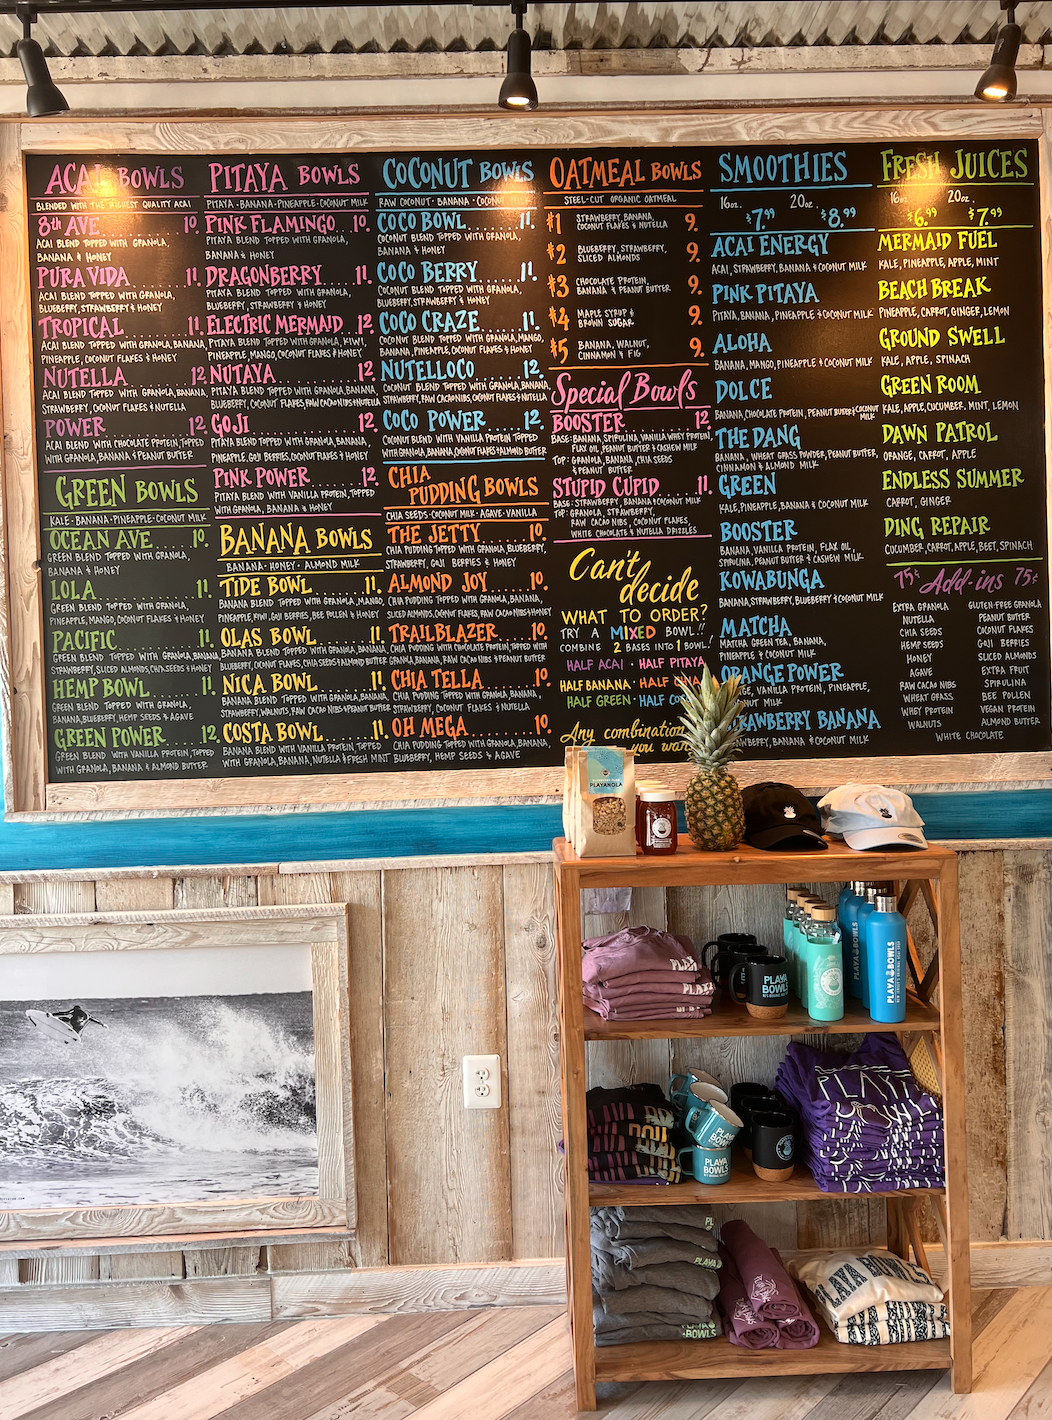 ACAI BOWLS
BLENDED WITH THE RICHEST QUALITY ACAI
8th AVE 10.
ACAI BLEND TOPPED WITH GRANOLA,
BANANA & HONEY
PURA VIDA 11.
ACAI BLEND TOPPED WITH GRANOLA,
BLUEBERRY, STRAWBERRY & HONEY
TROPICAL 11.
ACAI BLEND TOPPED WITH GRANOLA, BANANA,
PINEAPPLE, COCONUT FLAKES & HONEY
NUTELLA 12.
ACAI BLEND TOPPED WITH GRANOLA, BANANA,
STRAWBERRY, COCONUT FLAKES & NUTELLA
POWER 12.
ACAI BLEND WITH CHOCOLATE PROTEIN, TOPPED
WITH GRANOLA, BANANA & PEANUT BUTTER
GREEN BOWLS
KALE · BANANA · PINEAPPLE · COCONUT MILK
OCEAN AVE 10.
GREEN BLEND TOPPED WITH GRANOLA,
BANANA & HONEY
LOLA 11.
GREEN BLEND TOPPED WITH GRANOLA,
PINEAPPLE, MANGO, COCONUT FLAKES & HONEY
PACIFIC 11.
GREEN BLEND TOPPED WITH GRANOLA, BANANA,
STRAWBERRY, SLICED ALMONDS, CHIA SEEDS & HONEY
HEMP BOWL 11.
GREEN BLEND TOPPED WITH GRANOLA,
BANANA, BLUEBERRY, HEMP SEEDS & AGAVE
GREEN POWER 12.
GREEN BLEND WITH VANILLA PROTEIN, TOPPED
WITH GRANOLA, BANANA & ALMOND BUTTER
PITAYA BOWLS
PITAYA · BANANA · PINEAPPLE · COCONUT MILK
PINK FLAMINGO 10.
PITAYA BLEND TOPPED WITH GRANOLA,
BANANA & HONEY
DRAGONBERRY 11.
PITAYA BLEND TOPPED WITH GRANOLA,
BLUEBERRY, STRAWBERRY & HONEY
ELECTRIC MERMAID 12.
PITAYA BLEND TOPPED WITH GRANOLA, KIWI,
PINEAPPLE, MANGO, COCONUT FLAKES & HONEY
NUTAYA 12.
PITAYA BLEND TOPPED WITH GRANOLA, BANANA,
BLUEBERRY, COCONUT FLAKES, RAW CACAO NIBS & NUTELLA
GOJI 12.
PITAYA BLEND TOPPED WITH GRANOLA, BANANA,
PINEAPPLE, GOJI BERRIES, COCONUT FLAKES & HONEY
PINK POWER 12.
PITAYA BLEND WITH VANILLA PROTEIN, TOPPED
WITH GRANOLA, BANANA & HONEY
BANANA BOWLS
BANANA · HONEY · ALMOND MILK
TIDE BOWL 11.
BANANA BLEND TOPPED WITH GRANOLA, MANGO,
PINEAPPLE, KIWI, GOJI BERRIES, BEE POLLEN & HONEY
OLAS BOWL 11.
BANANA BLEND TOPPED WITH GRANOLA, BANANA,
BLUEBERRY, COCONUT FLAKES, CHIA SEEDS & ALMOND BUTTER
NICA BOWL 11.
BANANA BLEND TOPPED WITH GRANOLA, BANANA,
STRAWBERRY, WALNUTS, RAW CACAO NIBS & PEANUT BUTTER
COSTA BOWL 11.
BANANA BLEND WITH VANILLA PROTEIN, TOPPED
WITH GRANOLA, BANANA, NUTELLA & FRESH MINT
COCONUT BOWLS
RAW COCONUT · BANANA · COCONUT
COCO BOWL 11.
COCONUT BLEND TOPPED WITH GRANOLA,
BANANA & HONEY
COCO BERRY 11.
COCONUT BLEND TOPPED WITH GRANOLA,
BLUEBERRY, STRAWBERRY & HONEY
COCO CRAZE 11.
COCONUT BLEND TOPPED WITH GRANOLA, MANGO,
BANANA, PINEAPPLE, COCONUT FLAKES & HONEY
NUTELLOCO 12.
COCONUT BLEND TOPPED WITH GRANOLA, BANANA,
STRAWBERRY, RAW CACAO NIBS, COCONUT FLAKES & NUTELLA
COCO POWER 12.
COCONUT BLEND WITH VANILLA PROTEIN TOPPED
WITH GRANOLA, BANANA, COCONUT FLAKES & ALMOND BUTTER
CHIA
PUDDING BOWLS
CHIA SEEDS · COCONUT MILK · AGAVE · VANILLA
THE JETTY 10.
CHIA PUDDING TOPPED WITH GRANOLA, BLUEBERRY,
STRAWBERRY, GOJI BERRIES & HONEY
ALMOND JOY 10.
CHIA PUDDING TOPPED WITH GRANOLA, BANANA,
SLICED ALMONDS, COCONUT FLAKES, RAW CACAO NIBS & HONEY
TRAILBLAZER 10.
CHIA PUDDING WITH CHOCOLATE PROTEIN, TOPPED WITH
GRANOLA, BANANA, RAW CACAO NIBS & PEANUT BUTTER
CHIA TELLA 10.
CHIA PUDDING TOPPED WITH GRANOLA, BANANA,
STRAWBERRY, COCONUT FLAKES & NUTELLA
OH MEGA 10.
CHIA PUDDING TOPPED WITH GRANOLA, BANANA,
BLUEBERRY, HEMP SEEDS & AGAVE
OATMEAL BOWLS
STEEL-CUT ORGANIC OATMEAL
#1 STRAWBERRY, BANANA, 9.
COCONUT FLAKES & NUTELLA
#2 BLUEBERRY, STRAWBERRY, 9.
SLICED ALMONDS
#3 CHOCOLATE PROTEIN, 9.
BANANA & PEANUT BUTTER
#4 MAPLE SYRUP & 9.
BROWN SUGAR
#5 BANANA, WALNUT, 9.
CINNAMON & FIG
Special Bowls
BOOSTER 12.
BASE: BANANA, SPIRULINA, VANILLA WHEY PROTEIN,
FLAX OIL, PEANUT BUTTER & CASHEW MILK
TOP: GRANOLA, BANANA, CHIA SEEDS
& PEANUT BUTTER
STUPID CUPID 11.
BASE: STRAWBERRY, BANANA & COCONUT MILK
TOP: GRANOLA, STRAWBERRY,
RAW CACAO NIBS, COCONUT FLAKES,
WHITE CHOCOLATE & NUTELLA DRIZZLES
Can't
decide
WHAT TO ORDER?
TRY A MIXED BOWL!!
COMBINE 2 BASES INTO 1 BOWL!
HALF ACAI · HALF PITAYA
HALF BANANA · HALF CHIA
HALF GREEN · HALF CO
Any combination
you want
SMOOTHIES
16oz. 20oz.
$7.99 $8.99
ACAI ENERGY
ACAI, STRAWBERRY, BANANA & COCONUT MILK
PINK PITAYA
PITAYA, BANANA, PINEAPPLE & COCONUT MILK
ALOHA
BANANA, MANGO, PINEAPPLE & COCONUT MILK
DOLCE
BANANA, CHOCOLATE PROTEIN, PEANUT BUTTER & COCONUT
MILK
THE DANG
BANANA, WHEAT GRASS POWDER, PEANUT BUTTER,
CINNAMON & ALMOND MILK
GREEN
KALE, PINEAPPLE, BANANA & COCONUT MILK
BOOSTER
BANANA, VANILLA PROTEIN, FLAX OIL,
SPIRULINA, PEANUT BUTTER & CASHEW MILK
KOWABUNGA
BANANA, STRAWBERRY, BLUEBERRY & COCONUT MILK
MATCHA
MATCHA GREEN TEA, BANANA,
PINEAPPLE & COCONUT MILK
ORANGE POWER
GE, VANILLA PROTEIN, PINEAPPLE,
NUT MILK
TRAWBERRY BANANA
WBERRY, BANANA & COCONUT MILK
FRESH JUICES
16oz 20oz.
$6.99 $7.99
MERMAID FUEL
KALE, PINEAPPLE, APPLE, MINT
BEACH BREAK
PINEAPPLE, CARROT, GINGER, LEMON
GROUND SWELL
KALE, APPLE, SPINACH
GREEN ROOM
KALE, APPLE, CUCUMBER, MINT, LEMON
DAWN PATROL
ORANGE, CARROT, APPLE
ENDLESS SUMMER
CARROT, GINGER
DING REPAIR
CUCUMBER, CARROT, APPLE, BEET, SPINACH
75¢ Add-ins 75¢
EXTRA GRANOLA
NUTELLA
CHIA SEEDS
HEMP SEEDS
HONEY
AGAVE
RAW CACAO NIBS
WHEAT GRASS
WHEY PROTEIN
WALNUTS
GLUTEN-FREE GRANOLA
PEANUT BUTTER
COCONUT FLAKES
GOJI BERRIES
SLICED ALMONDS
EXTRA FRUIT
SPIRULINA
BEE POLLEN
VEGAN PROTEIN
ALMOND BUTTER
WHITE CHOCOLATE
PLAYANOLA
PLAYA
BOWLS
PLAYA BOWLS
PLAYA BOWLS
PLAYA
BOWLS
PLAYA
BOWLS
PLAYA
BOWLS
PLAYA BOWLS